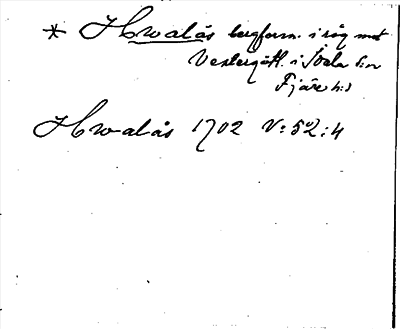 * Hwalås bergsn. i råg mot
Vestergötl. i Idala sn
Fjäre hd
Hwalås 1702 V:52:4